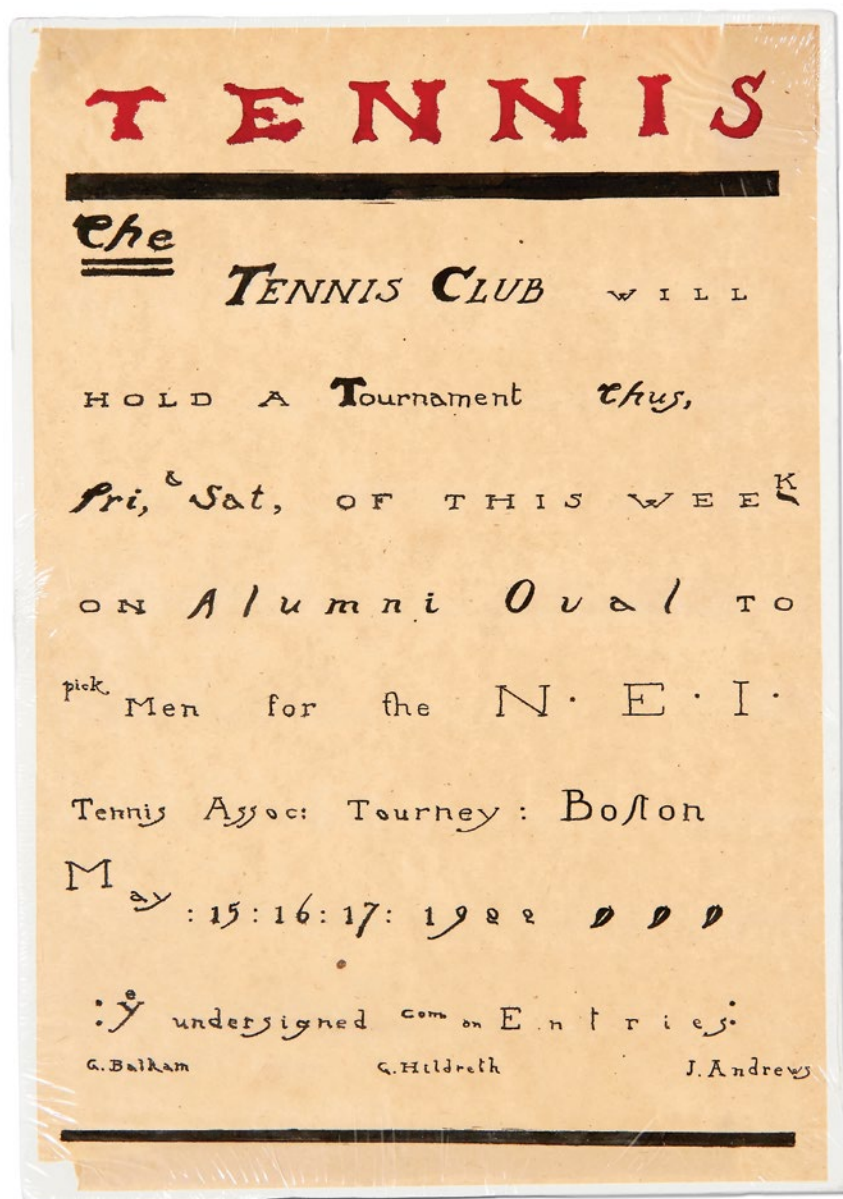 TENNIS
The
TENNIS CLUB WILL
HOLD A Tournament Thus,
Fri, & Sat, OF THIS WEEK
ON Alumni Oval TO
pick Men for the N. E. I.
Tennis Assoc: Tourney: Boston
May :15:16:17: 1922
:ye undersigned com on Entries:
G. Balkam G. Hildreth J. Andrews